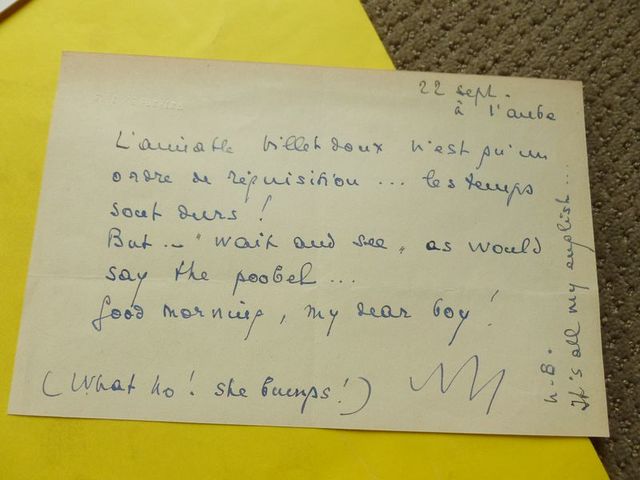 22 sept.
à l'aube
L'aimable billet doux n'est qu'un
ordre de réquisition ... les temps
sont durs !
But ... "wait and see" as would
say the poobel ...
Good morning, my dear boy !
(What ho ! she bumps !)
N.B.
It's all my english ...